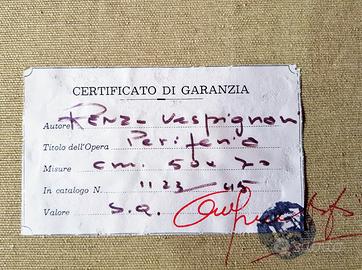 CERTIFICATO DI GARANZIA
Autore Renzo Vespignani
Titolo dell'Opera Periferia
Misure cm. 50x70
In catalogo N. 1123-45
Valore S.Q.